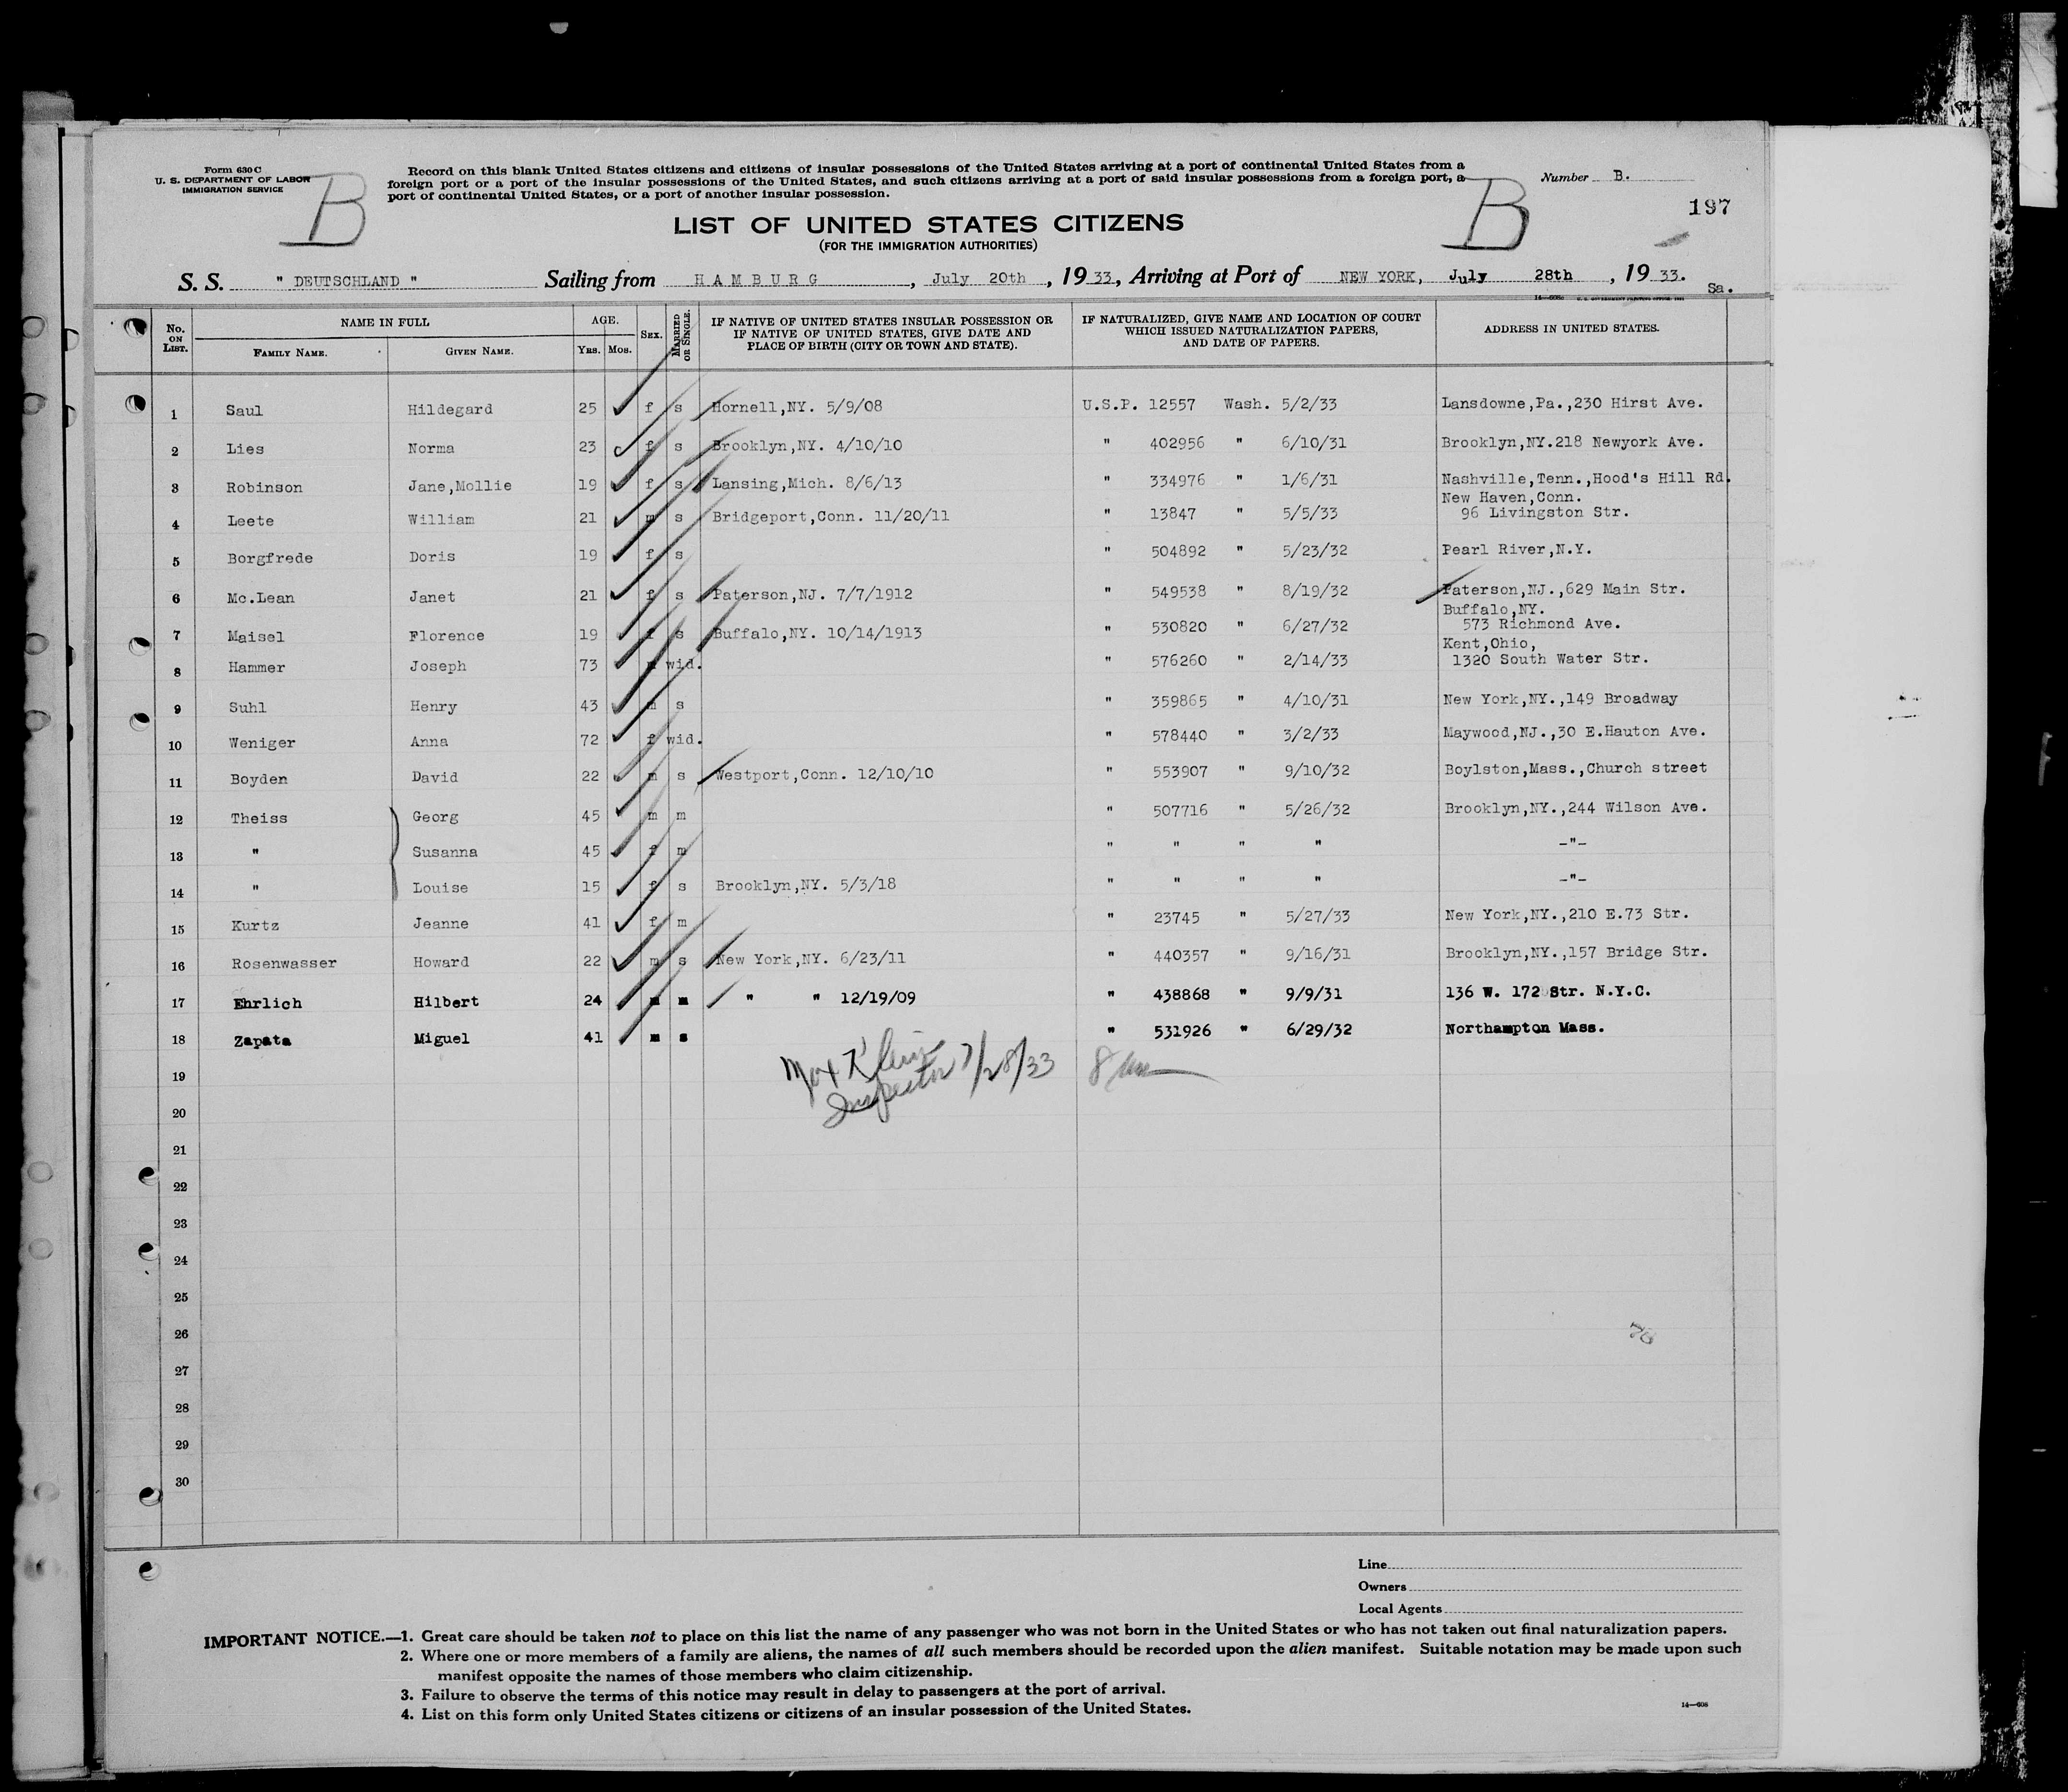 Form 630 C
U. S. DEPARTMENT OF LABOR
IMMIGRATION SERVICE
B
Record on this blank United States citizens and citizens of insular possessions of the United States arriving at a port of continental United States from a
foreign port or a port of the insular possessions of the United States, and such citizens arriving at a port of said insular possessions from a foreign port, a
port of continental United States, or a port of another insular possession.
B
Number B.
197
LIST OF UNITED STATES CITIZENS
(FOR THE IMMIGRATION AUTHORITIES)
S. S. " DEUTSCHLAND " Sailing from HAMBURG, July 20th, 1933, Arriving at Port of NEW YORK, July 28th, 1933.
Sa.
No. ON LIST. NAME IN FULL FAMILY NAME. GIVEN NAME. AGE. YRS. MOS. SEX. MARRIED OR SINGLE. IF NATIVE OF UNITED STATES INSULAR POSSESSION OR IF NATIVE OF UNITED STATES, GIVE DATE AND PLACE OF BIRTH (CITY OR TOWN AND STATE). IF NATURALIZED, GIVE NAME AND LOCATION OF COURT WHICH ISSUED NATURALIZATION PAPERS, AND DATE OF PAPERS. ADDRESS IN UNITED STATES.
1 Saul Hildegard 25 f s Hornell,NY. 5/9/08 U.S.P. 12557 Wash. 5/2/33 Lansdowne,Pa.,230 Hirst Ave.
2 Lies Norma 23 f s Brooklyn,NY. 4/10/10 " 402956 " 6/10/31 Brooklyn,NY.218 Newyork Ave.
3 Robinson Jane,Mollie 19 f s Lansing,Mich. 8/6/13 " 334976 " 1/6/31 Nashville,Tenn.,Hood's Hill Rd.
4 Leete William 21 m s Bridgeport,Conn. 11/20/11 " 13847 " 5/5/33 New Haven,Conn. 96 Livingston Str.
5 Borgfrede Doris 19 f s " 504892 " 5/23/32 Pearl River,N.Y.
6 Mc.Lean Janet 21 f s Paterson,NJ. 7/7/1912 " 549538 " 8/19/32 Paterson,NJ.,629 Main Str.
7 Maisel Florence 19 f s Buffalo,NY. 10/14/1913 " 530820 " 6/27/32 Buffalo,NY. 573 Richmond Ave.
8 Hammer Joseph 73 m wid. " 576260 " 2/14/33 Kent,Ohio, 1320 South Water Str.
9 Suhl Henry 43 m s " 359865 " 4/10/31 New York,NY.,149 Broadway
10 Weniger Anna 72 f wid. " 578440 " 3/2/33 Maywood,NJ.,30 E.Hauton Ave.
11 Boyden David 22 m s Westport,Conn. 12/10/10 " 553907 " 9/10/32 Boylston,Mass.,Church street
12 Theiss Georg 45 m m " 507716 " 5/26/32 Brooklyn,NY.,244 Wilson Ave.
13 " Susanna 45 f m " " " " -"-
14 " Louise 15 f s Brooklyn,NY. 5/3/18 " " " " -"-
15 Kurtz Jeanne 41 f m " 23745 " 5/27/33 New York,NY.,210 E.73 Str.
16 Rosenwasser Howard 22 m s New York,NY. 6/23/11 " 440357 " 9/16/31 Brooklyn,NY.,157 Bridge Str.
17 Ehrlich Hilbert 24 m m " " 12/19/09 " 438868 " 9/9/31 136 W. 172 Str. N.Y.C.
18 Zapata Miguel 41 m s " 531926 " 6/29/32 Northampton Mass.
Max Klein 7/28/33
Inspector
19
20
21
22
23
24
25
26
27
28
29
30
Line
Owners
Local Agents
IMPORTANT NOTICE.—1. Great care should be taken not to place on this list the name of any passenger who was not born in the United States or who has not taken out final naturalization papers.
2. Where one or more members of a family are aliens, the names of all such members should be recorded upon the alien manifest. Suitable notation may be made upon such
manifest opposite the names of those members who claim citizenship.
3. Failure to observe the terms of this notice may result in delay to passengers at the port of arrival.
4. List on this form only United States citizens or citizens of an insular possession of the United States.
14—608